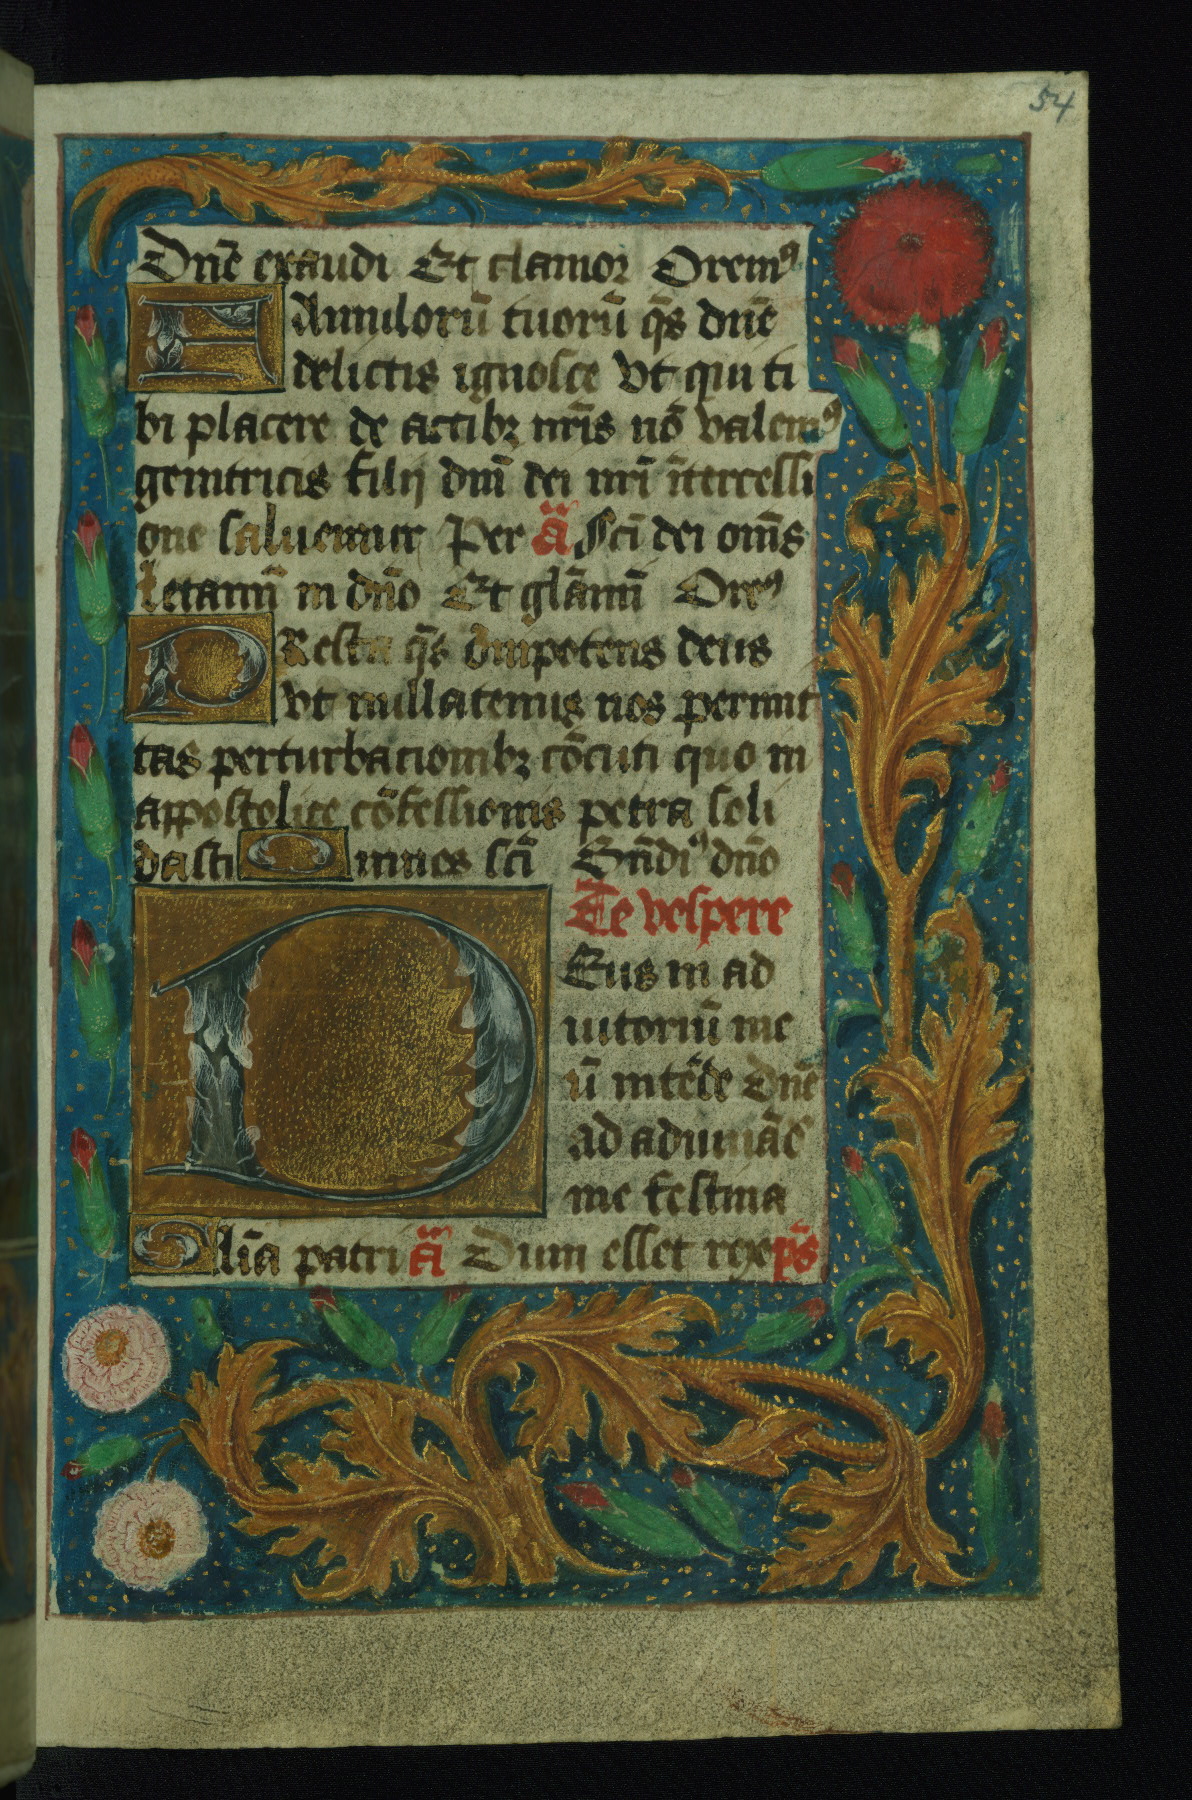 54
Dnē exaudi Et clamor Oremꝰ
FAmuloꝝū tuorū q̄s dnē
delictis ignosce Vt qui ti
bi placere de actibꝫ nr̄is nō valemꝰ
genitricis filij dn̄i dei nr̄i īntercessi
one saluemur Per ā Sc̄i dei om̄s
Letamī in dn̄o Et gl̄amī Oreꝰ
PResta q̄s om̄ipotens deus
vt nullatenus nos permit
tas perturbationibꝫ cōcuti quo in
appostolice cōfessionis petra soli
dasti Omnes sc̄i Bn̄diꝰ dn̄o
De vespere
DEus in ad
iutoriū me
ū intēde Dnē
ad adiuuāō
me festina
Glīa patri ā Dum esset rex ps̄